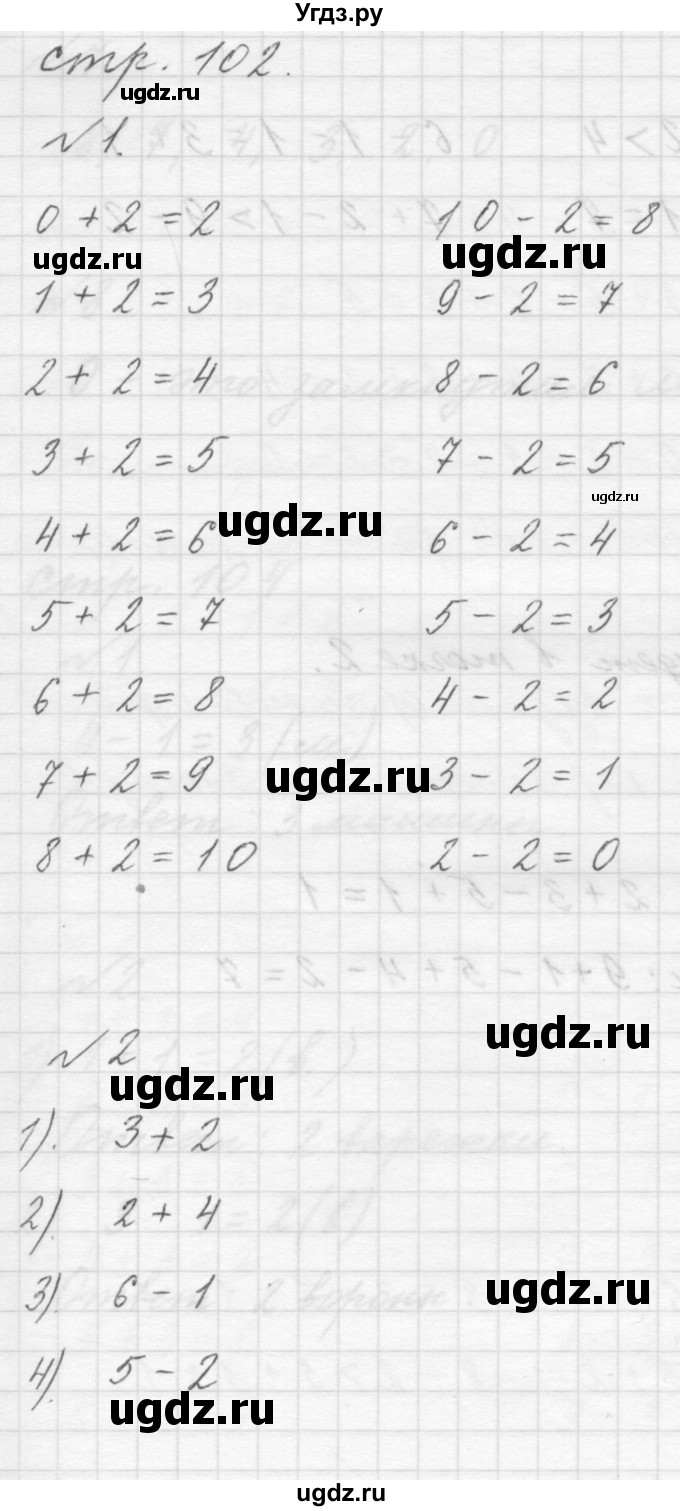 Угдз.ру
стр. 102.
ugdz.ru
№1.
0 + 2 = 2 10 - 2 = 8
ugdz.ru ugdz.ru
1 + 2 = 3 9 - 2 = 7
2 + 2 = 4 8 - 2 = 6
3 + 2 = 5 7 - 2 = 5
ugdz.ru
ugdz.ru
4 + 2 = 6 6 - 2 = 4
5 + 2 = 7 5 - 2 = 3
6 + 2 = 8 4 - 2 = 2
7 + 2 = 9 ugdz.ru 3 - 2 = 1
8 + 2 = 10 2 - 2 = 0
ugdz.ru
№2
ugdz.ru
1). 3 + 2
2). 2 + 4
3). 6 - 1
ugdz.ru
4). 5 - 2
ugdz.ru
ugdz.ru